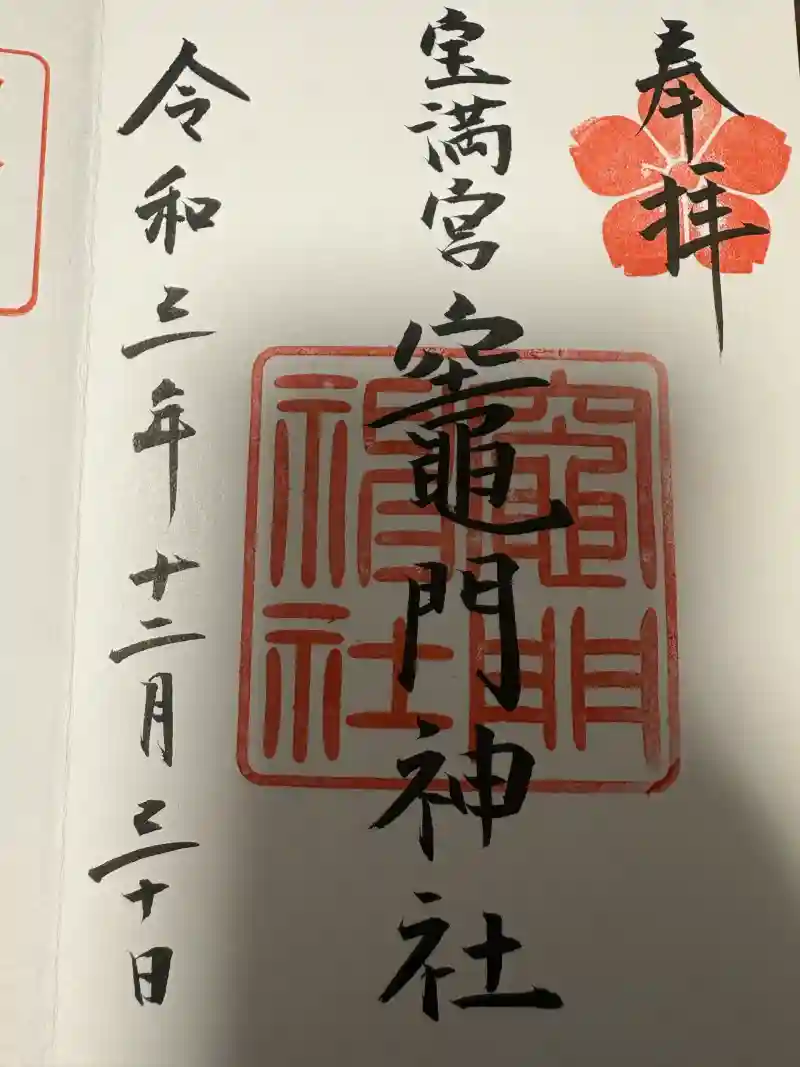 奉拝
宝満宮
竈門神社
竈門神社
令和三年十二月三十日